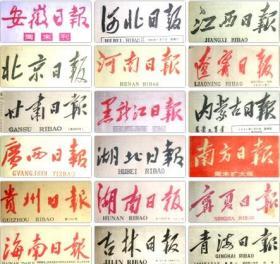 安徽日報
周末刊
河北日報
HEBEI RIBAO
江西日報
JIANGXI RIBAO
北京日報
河南日報
HENAN RIBAO
遼寧日報
LIAONING RIBAO
甘肅日報
GANSU RIBAO
黑龍江日報
内蒙古日報
廣西日報
GVANGJSIH YIZBAO
湖北日報
HUBEI RIBAO
南方日報
周末扩大版
貴州日報
GUIZHOU RIBAO
湖南日報
HUNAN RIBAO
寧夏日報
NINGXIA RIBAO
海南日报
吉林日報
JILIN RIBAO
青海日報
QINGHAI RIBAO